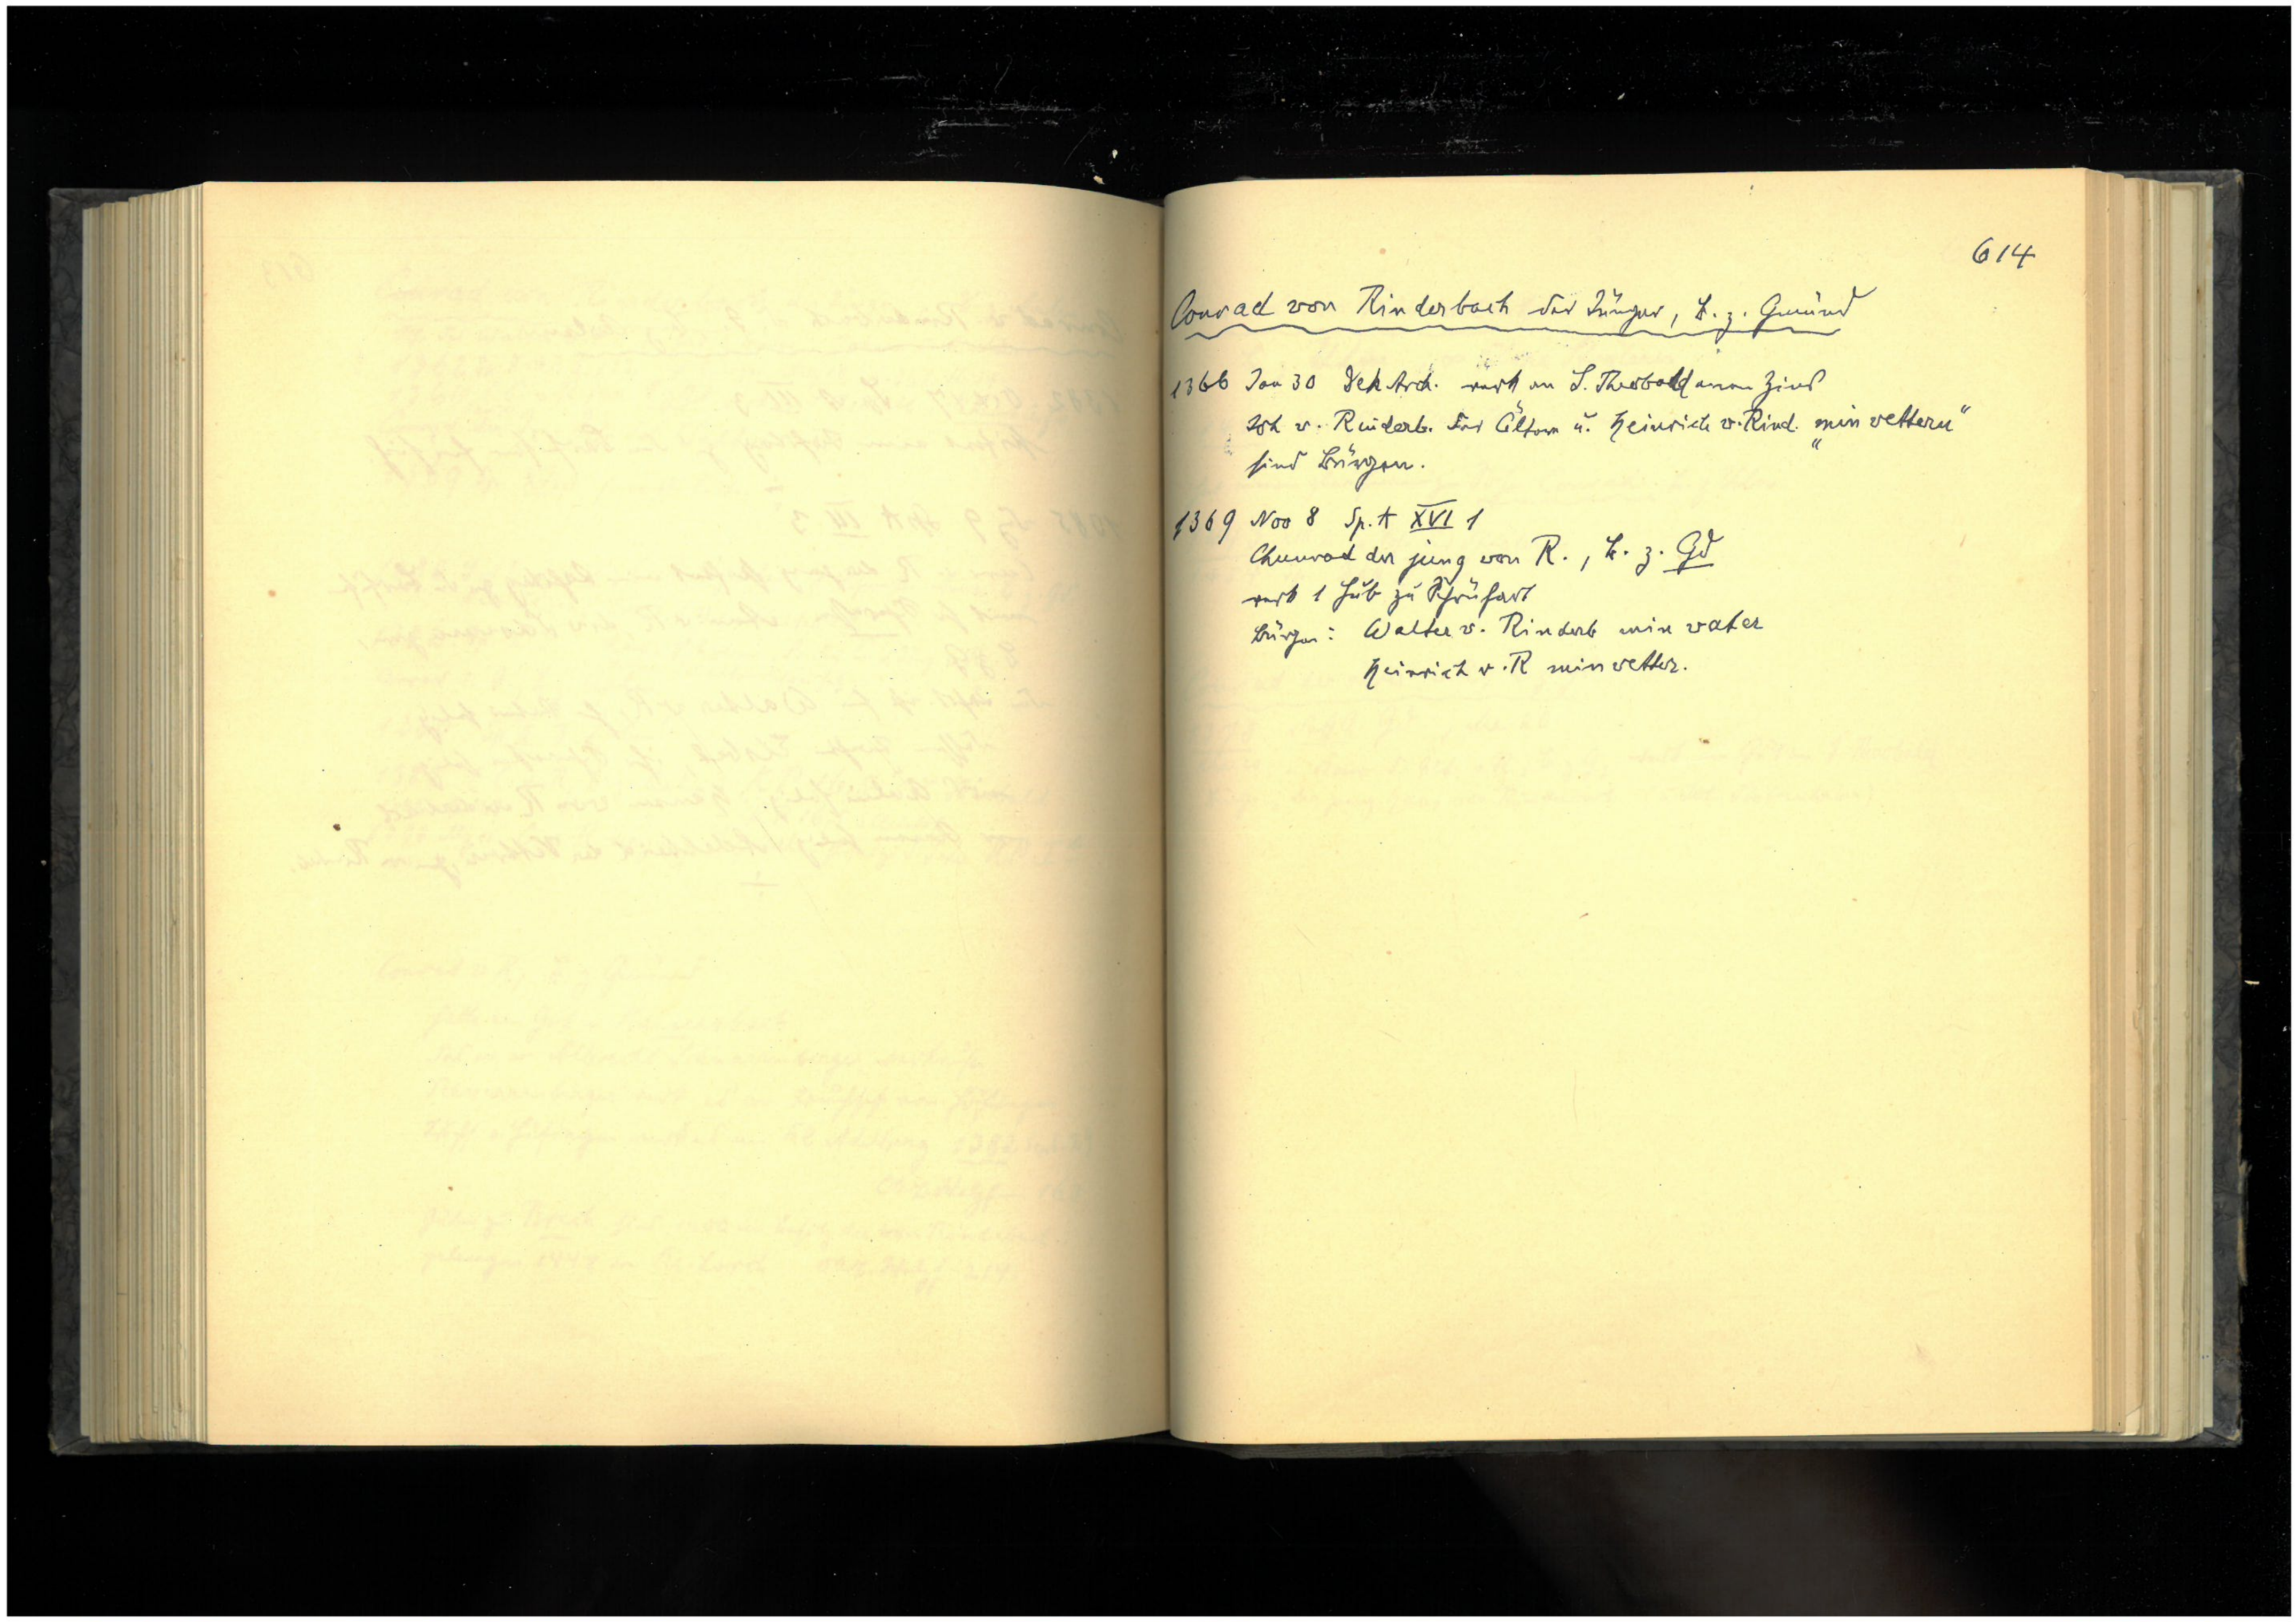 614
Conrad von Rinderbach der Jünger, B. z. Gmünd
1366 Jan 30 Dek Arch. verk an S. Theobald einen Zins
Joh v. Rinderb. der Ältere u. Heinrich v. Rind. "min vettern"
sind Bürgen.
1369 Nov 8 Sp. A XVI 1
Chunrad der jung von R., B. z. Gd
verk 1 Hub zu
Bürgen: Walter v. Rinderb min vater
Heinrich v. R min vetter.